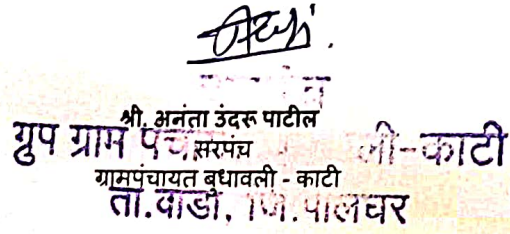 श्री. अनंता उंदरू पाटील
ग्रुप ग्राम पंच ली-काटी
सरपंच
ग्रामपंचायत बुधावली - काटी
ता.वाडा, जि.पालघर